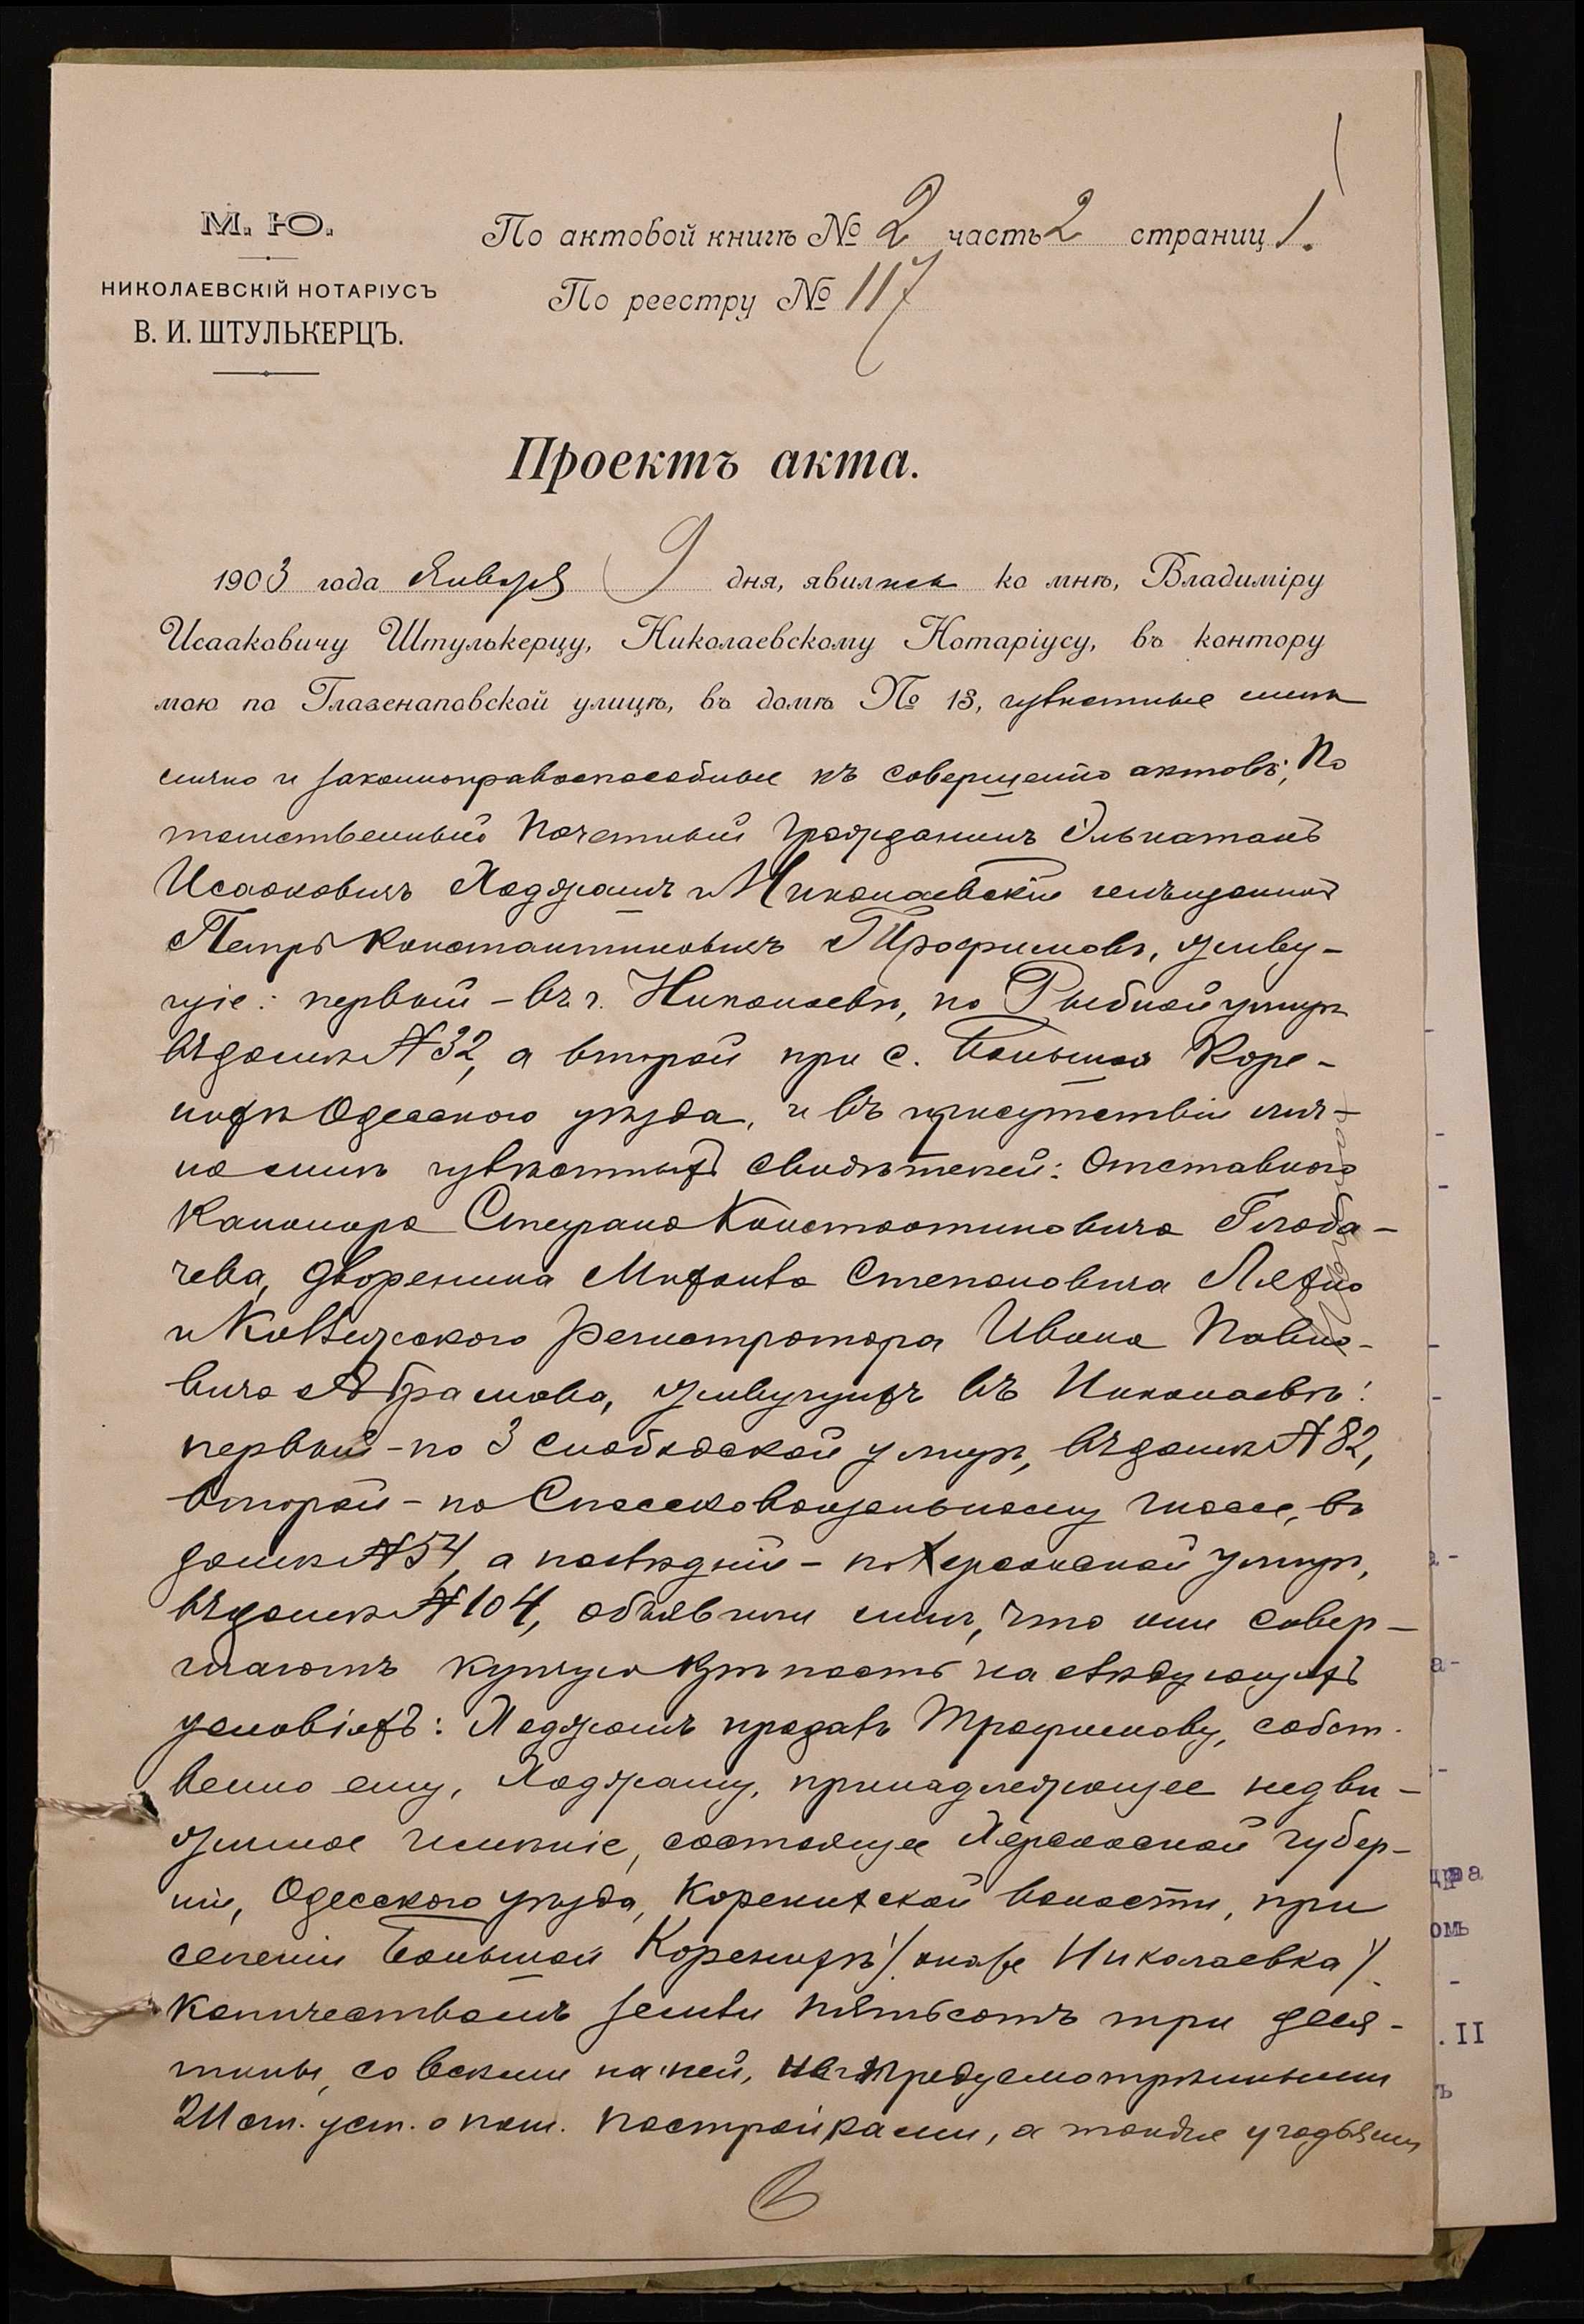 М. Ю.
НИКОЛАЕВСКІЙ НОТАРІУСЪ
В. И. ШТУЛЬКЕРЦЪ.
По актовой книгѣ № 2 часть 2 страниц 1.
По реестру № 117
Проектъ акта.
1903 года Января 9 дня, явились ко мнѣ, Владиміру
Исааковичу Штулькерцу, Николаевскому Нотаріусу, въ контору
мою по Глазенаповской улицѣ, въ домѣ № 13, извѣстные мнѣ
лично и законноправоспособные къ совершенію актовъ: По
томственный Почетный Гражданинъ Эльнатанъ
Исааковичъ Ходжашъ и Николаевскій мѣщанинъ
Петръ Константиновичъ Трофимовъ, живу-
щіе: первый – въ г. Николаевѣ, по Рыбной улицѣ
въ домѣ № 32, а второй при с. Большой Коре-
нихѣ Одесскаго уѣзда, и въ присутствіи лич-
но мнѣ извѣстныхъ свидѣтелей: отставного
Канонира Стефана Константиновича Глоба-
чева, дворянина Степановича
и Коллежскаго Регистратора Ивана Павло-
вича Абрамова, живущихъ въ Николаевѣ:
первый – по 3 Слободской улицѣ, въ домѣ № 82,
второй – по шоссе, въ
домѣ № 54, а послѣдній – по Херсонской улицѣ,
въ домѣ № 104, объявили мнѣ, что они совер-
шаютъ купчую крѣпость на слѣдующихъ
условіяхъ: Ходжашъ продалъ Трофимову, собст-
венно ему, Ходжашу, принадлежащее недви-
жимое имѣніе, состоящее Херсонской губер-
ніи, Одесскаго уѣзда, Коренихской волости, при
селеніи Большой Коренихѣ /онаже Николаевка/
количествомъ земли пятьсотъ три деся-
тины, со всѣми на ней, предусмотрѣнными
ст. уст. о пош. постройками, а также угодьями